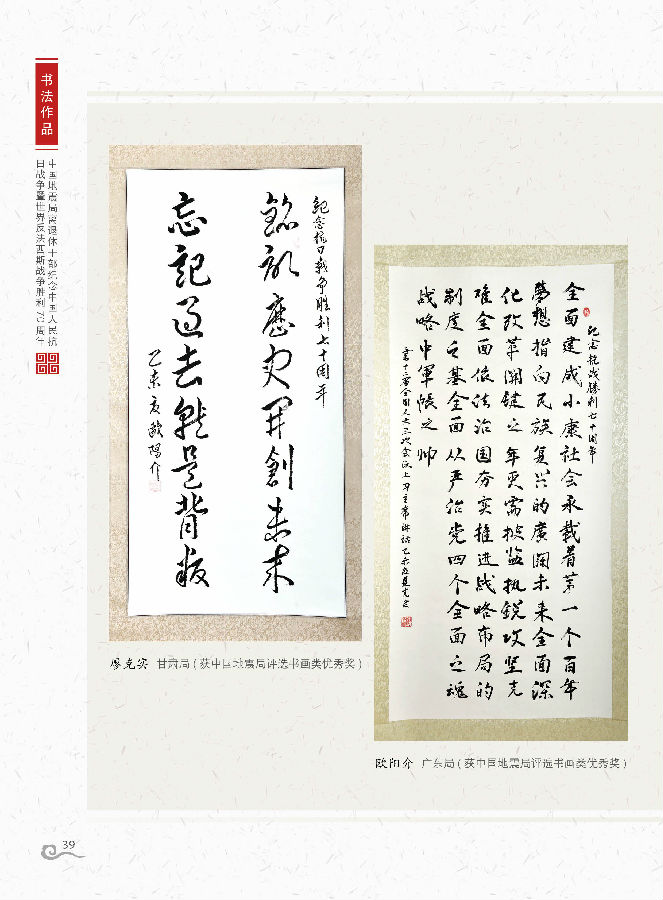 书法作品
中国地震局离退休干部纪念中国人民抗
日战争暨世界反法西斯战争胜利70周年
紀念抗日戰争胜利七十周年
銘記歷史開創未来
忘記過去就是背叛
乙未夏歐陽介
廖克安 甘肃局(获中国地震局评选书画类优秀奖)
纪念抗战勝利七十周年
全面建成小康社会承载着第一个百年
夢想指向民族复兴的廣闊未来全面深
化改革関键之年更需披荆执锐攻坚克
难全面依法治国夯实推进战略布局的
制度之基全面从严治党四个全面之魂
战略中軍帳之帅
欧阳介 广东局(获中国地震局评选书画类优秀奖)
39